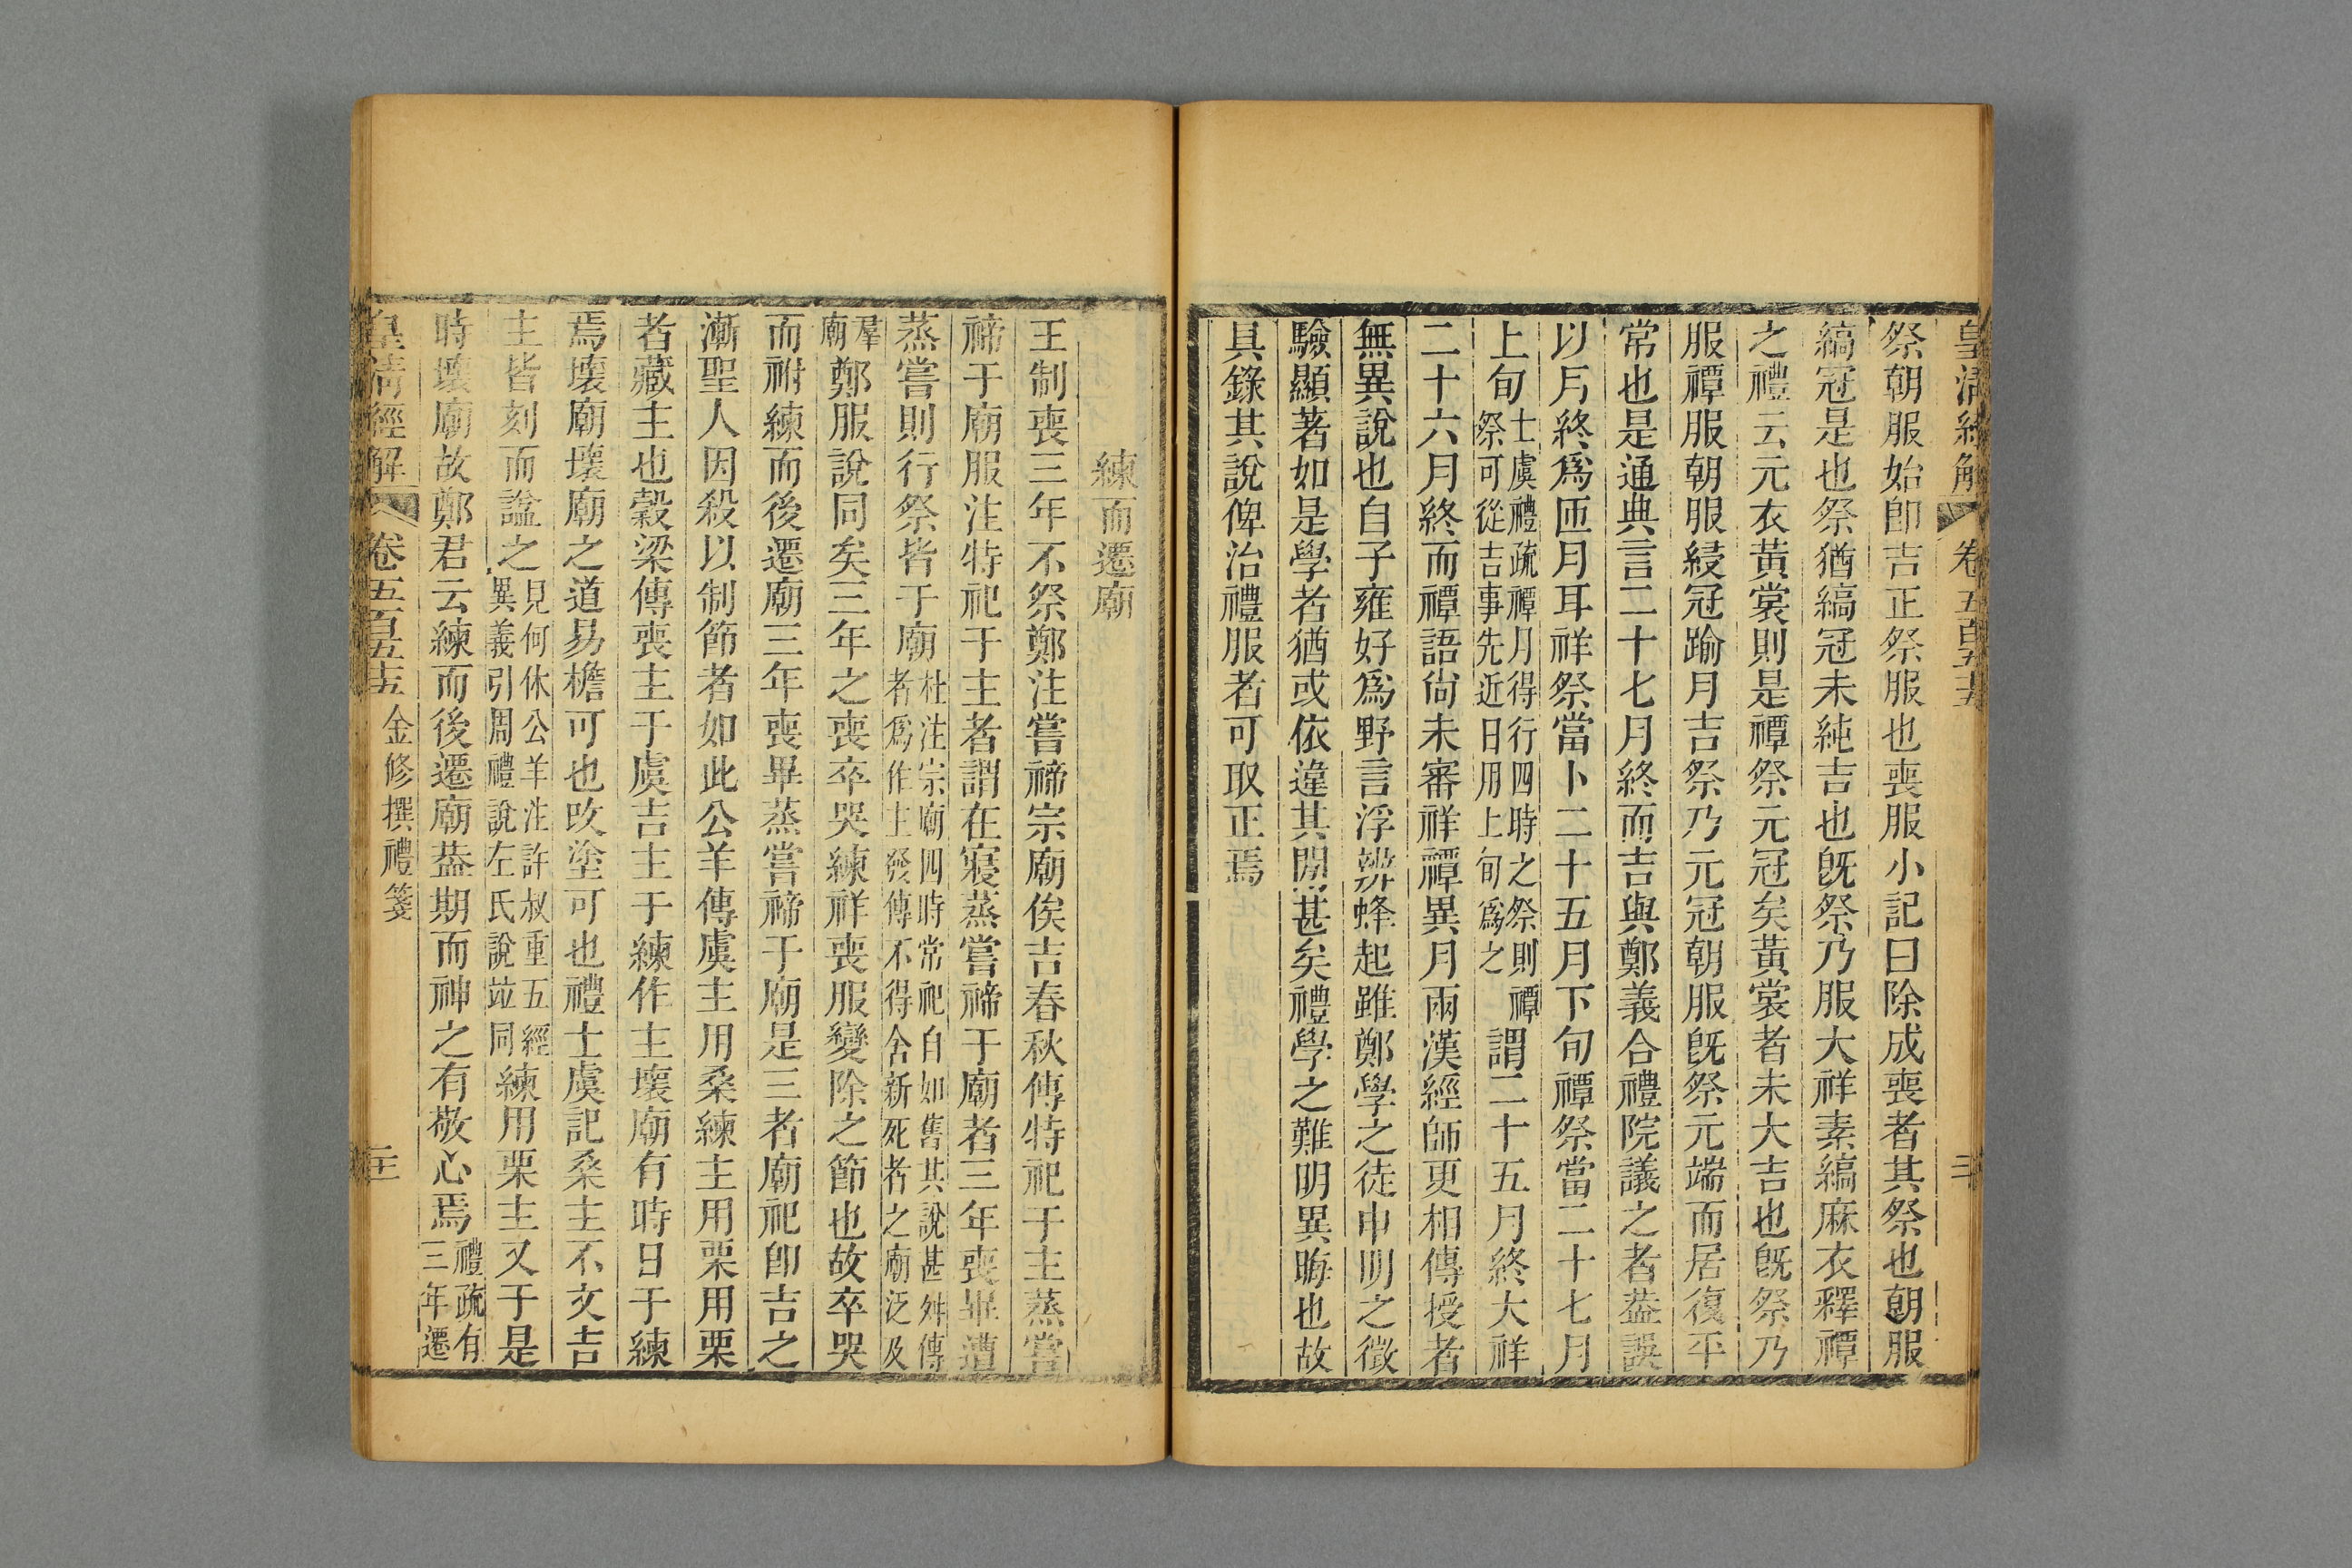 皇清經解 卷五百五十五 三十
祭朝服始卽吉正祭服也喪服小記曰除成喪者其祭也朝服
縞冠是也祭猶縞冠未純吉也旣祭乃服大祥素縞麻衣釋禫
之禮云元衣黃裳則是禫祭元冠矣黃裳者未大吉也旣祭乃
服禫服朝服綅冠踰月吉祭乃元冠朝服旣祭元端而居復平
常也是通典言二十七月終而吉與鄭義合禮院議之者葢誤
以月終爲匝月耳祥祭當卜二十五月下旬禫祭當二十七月
上旬士虞禮疏禫月得行四時之祭則禫祭可從吉事先近日用上旬爲之謂二十五月終大祥
二十六月終而禫語尙未審祥禫異月兩漢經師更相傳授者
無異說也自子雍好爲野言浮辨蜂起雖鄭學之徒申明之徵
驗顯著如是學者猶或依違其閒甚矣禮學之難明異晦也故
具錄其說俾治禮服者可取正焉
練而遷廟
王制喪三年不祭鄭注嘗禘宗廟俟吉春秋傳特祀于主蒸嘗
禘于廟服注特祀于主者謂在寢蒸嘗禘于廟者三年喪畢遭
蒸嘗則行祭皆于廟杜注宗廟四時常祀自如舊其說甚舛傳者爲作主發傳不得舍新死者之廟泛及
羣廟鄭服說同矣三年之喪卒哭練祥喪服變除之節也故卒哭
而祔練而後遷廟三年喪畢蒸嘗禘于廟是三者廟祀卽吉之
漸聖人因殺以制節者如此公羊傳虞主用桑練主用栗用栗
者藏主也穀梁傳喪主于虞吉主于練作主壞廟有時日于練
焉壞廟壞廟之道易檐可也改塗可也禮士虞記桑主不文吉
主皆刻而謚之見何休公羊注許叔重五經異義引周禮說左氏說竝同練用栗主又于是
時壞廟故鄭君云練而後遷廟葢期而神之有敬心焉禮疏有三年遷
皇清經解 卷五百五十五 金修撰禮箋 三十一